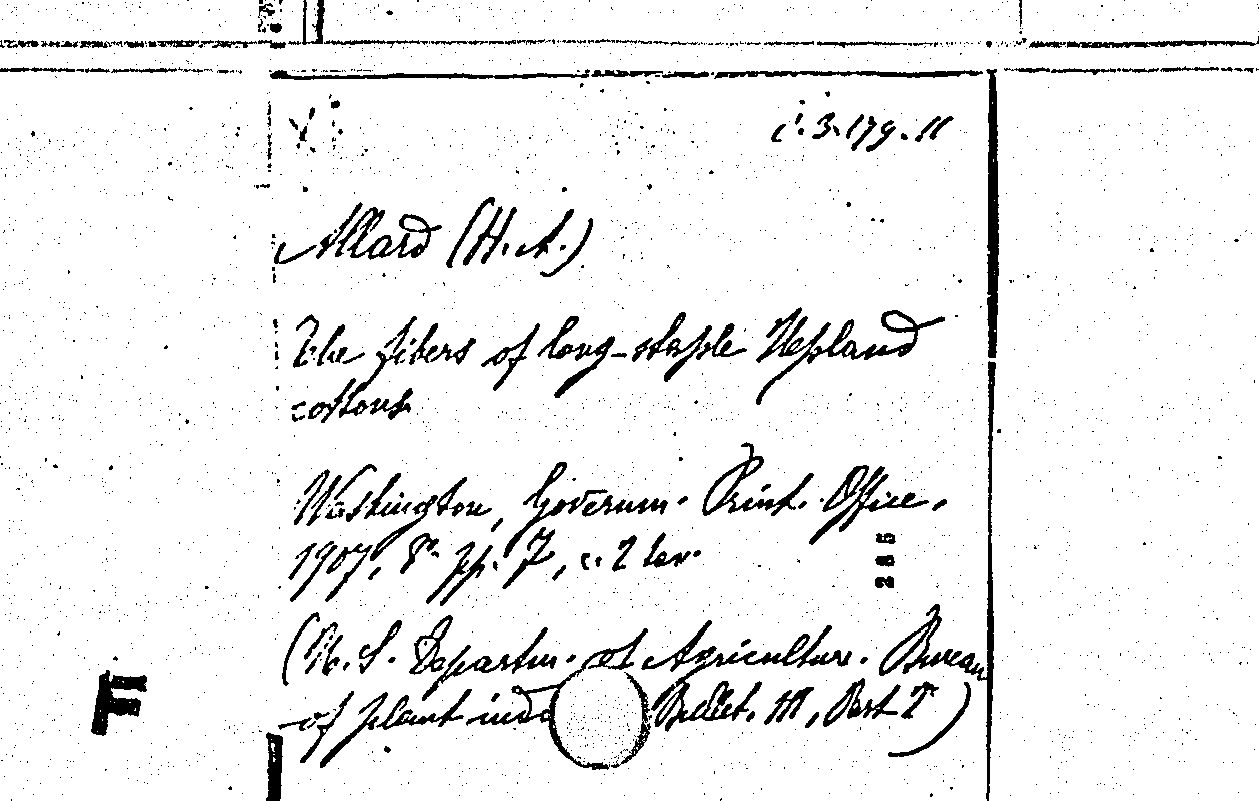 i. 3. 179. 11
Allard (H. A.)
The fibers of long-staple Upland
cottons
Washington, Governm. Print. Office,
1907, 8° pp. 7, c. 2 tav.
285
(U. S. Departm. of Agriculture. Bureau
of plant ind Bullet. 111, Part I)
F